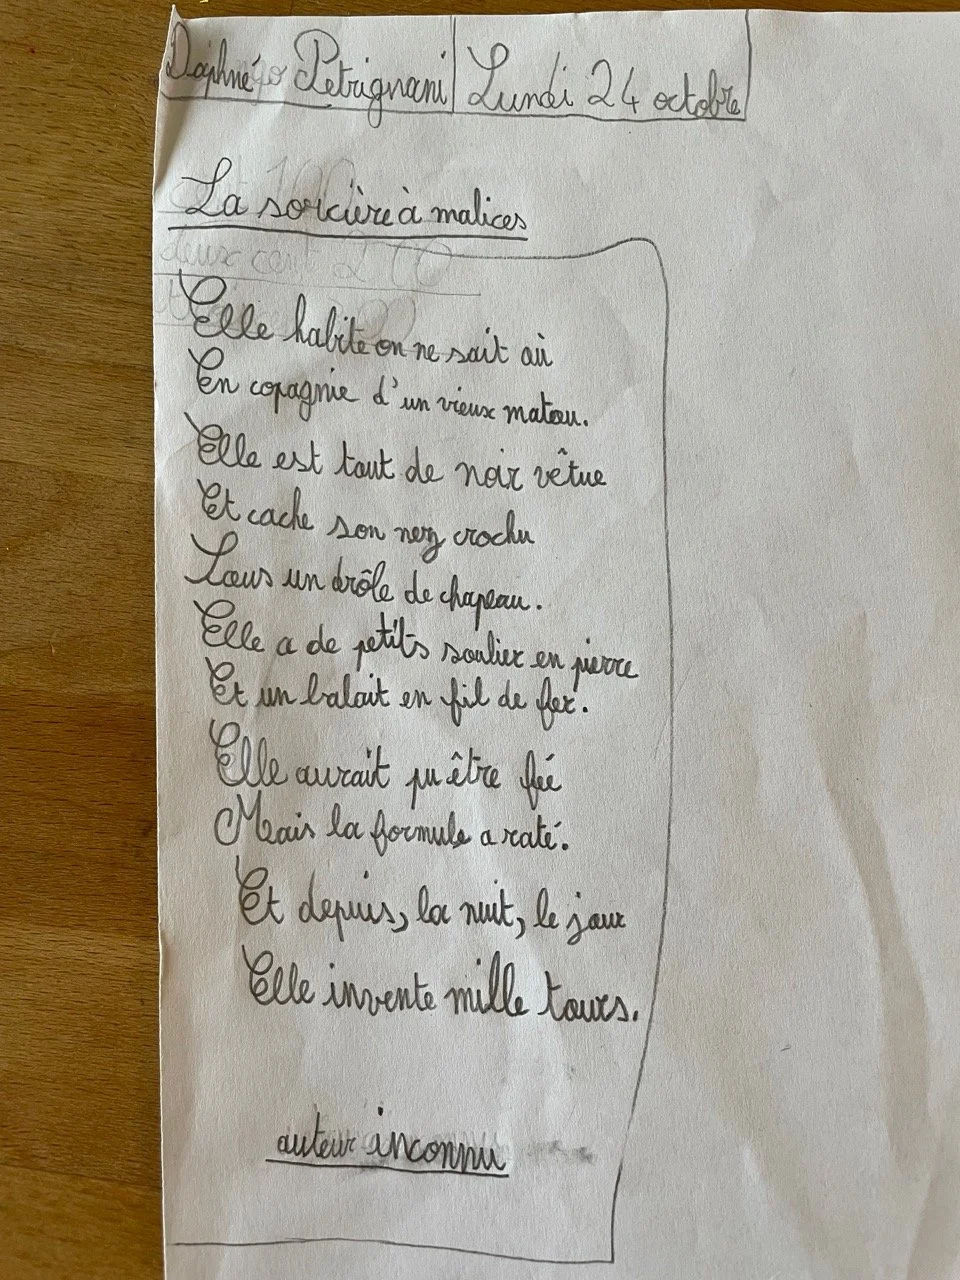 Daphné Petrignani Lundi 24 octobre
La sorcière à malices
deux cent 200
Elle habite on ne sait où
En copagnie d'un vieux matou.
Elle est tout de noir vêtue
Et cache son nez crochu
Sous un drôle de chapeau.
Elle a de petits soulier en pierre
Et un balait en fil de fer.
Elle aurait pu être fée
Mais la formule a raté.
Et depuis, la nuit, le jour
Elle invente mille tours.
auteur inconnu